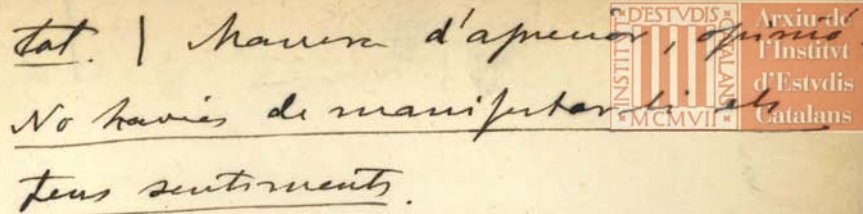 tat. | Manera d'apreciar, opinió.
No havies de manifestar-li els
teus sentiments.
INSTITUT D'ESTVDIS CATALANS
MCMVII
Arxiu de
l'Institvt
d'Estvdis
Catalans